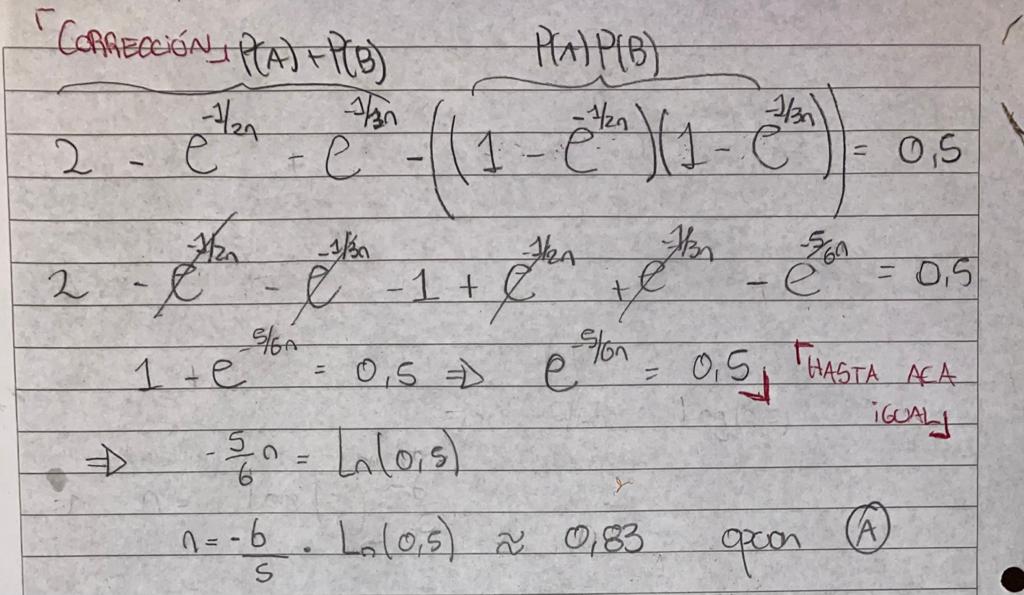 「CORRECCIÓN」 P(A) + P(B) P(A) P(B)
2 - e^{-1/2n} - e^{-1/3n} - ((1 - e^{-1/2n})(1 - e^{-1/3n})) = 0,5
2 - e^{-1/2n} - e^{-1/3n} - 1 + e^{-1/2n} + e^{-1/3n} - e^{-5/6n} = 0,5
1 - e^{-5/6n} = 0,5 ⇒ e^{-5/6n} = 0,5」 「HASTA ACA
iGUAL」
⇒ -5/6 n = Ln(0,5)
n = -6/5 . Ln(0,5) ≈ 0,83 opcon (A)